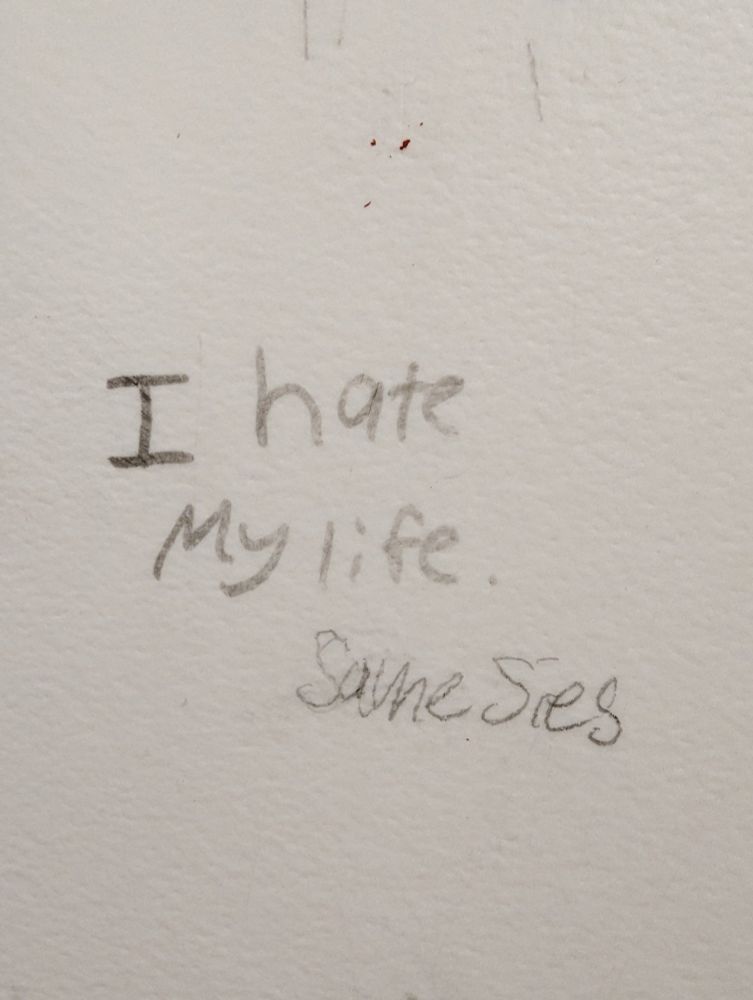 I hate
My life.
Same Sies